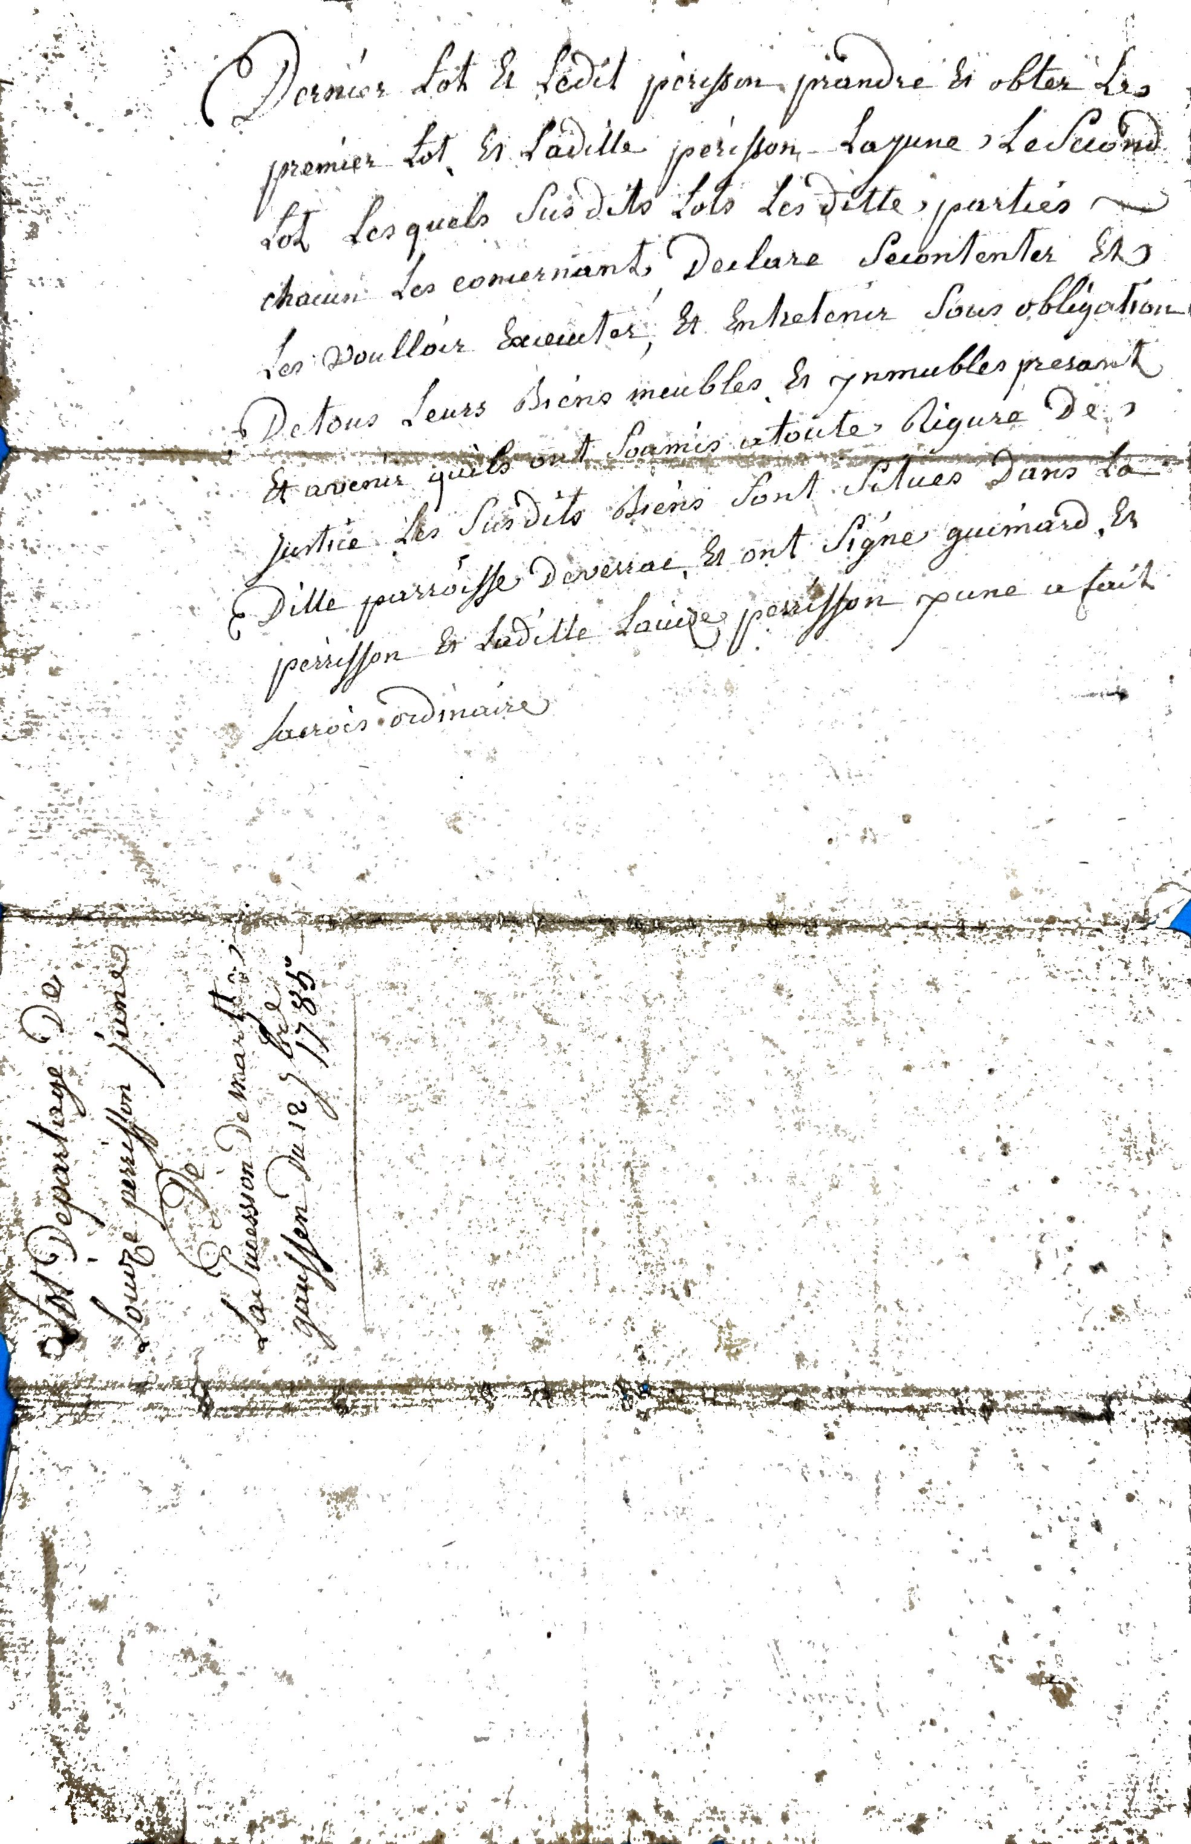 Dernier Lot Et Ledit périsson prandre Et obter Les
premier Lot Et Laditte périsson Lajune Le Second
Lot Les quels Susdits Lots Lesditte parties
chacun Les concernant Declare Secontenter Et
Les voulloir Executer, Et Entretenir Sous obligation
Detous Leurs Biens meubles Et ynmubles presant
Et avenir quils ont Soumis atoute Rigure De
Justice Les Susdits Biens Sont Situes Dans La
Ditte parroisse Deverrac Et ont Signe guimard Et
perrisson Et Laditte Louize perrisson june a fait
Sacrois ordinaire
Lot Departage De
Louize perrisson june
De
La Sucession De
gaussen Du 12 9bre
1785